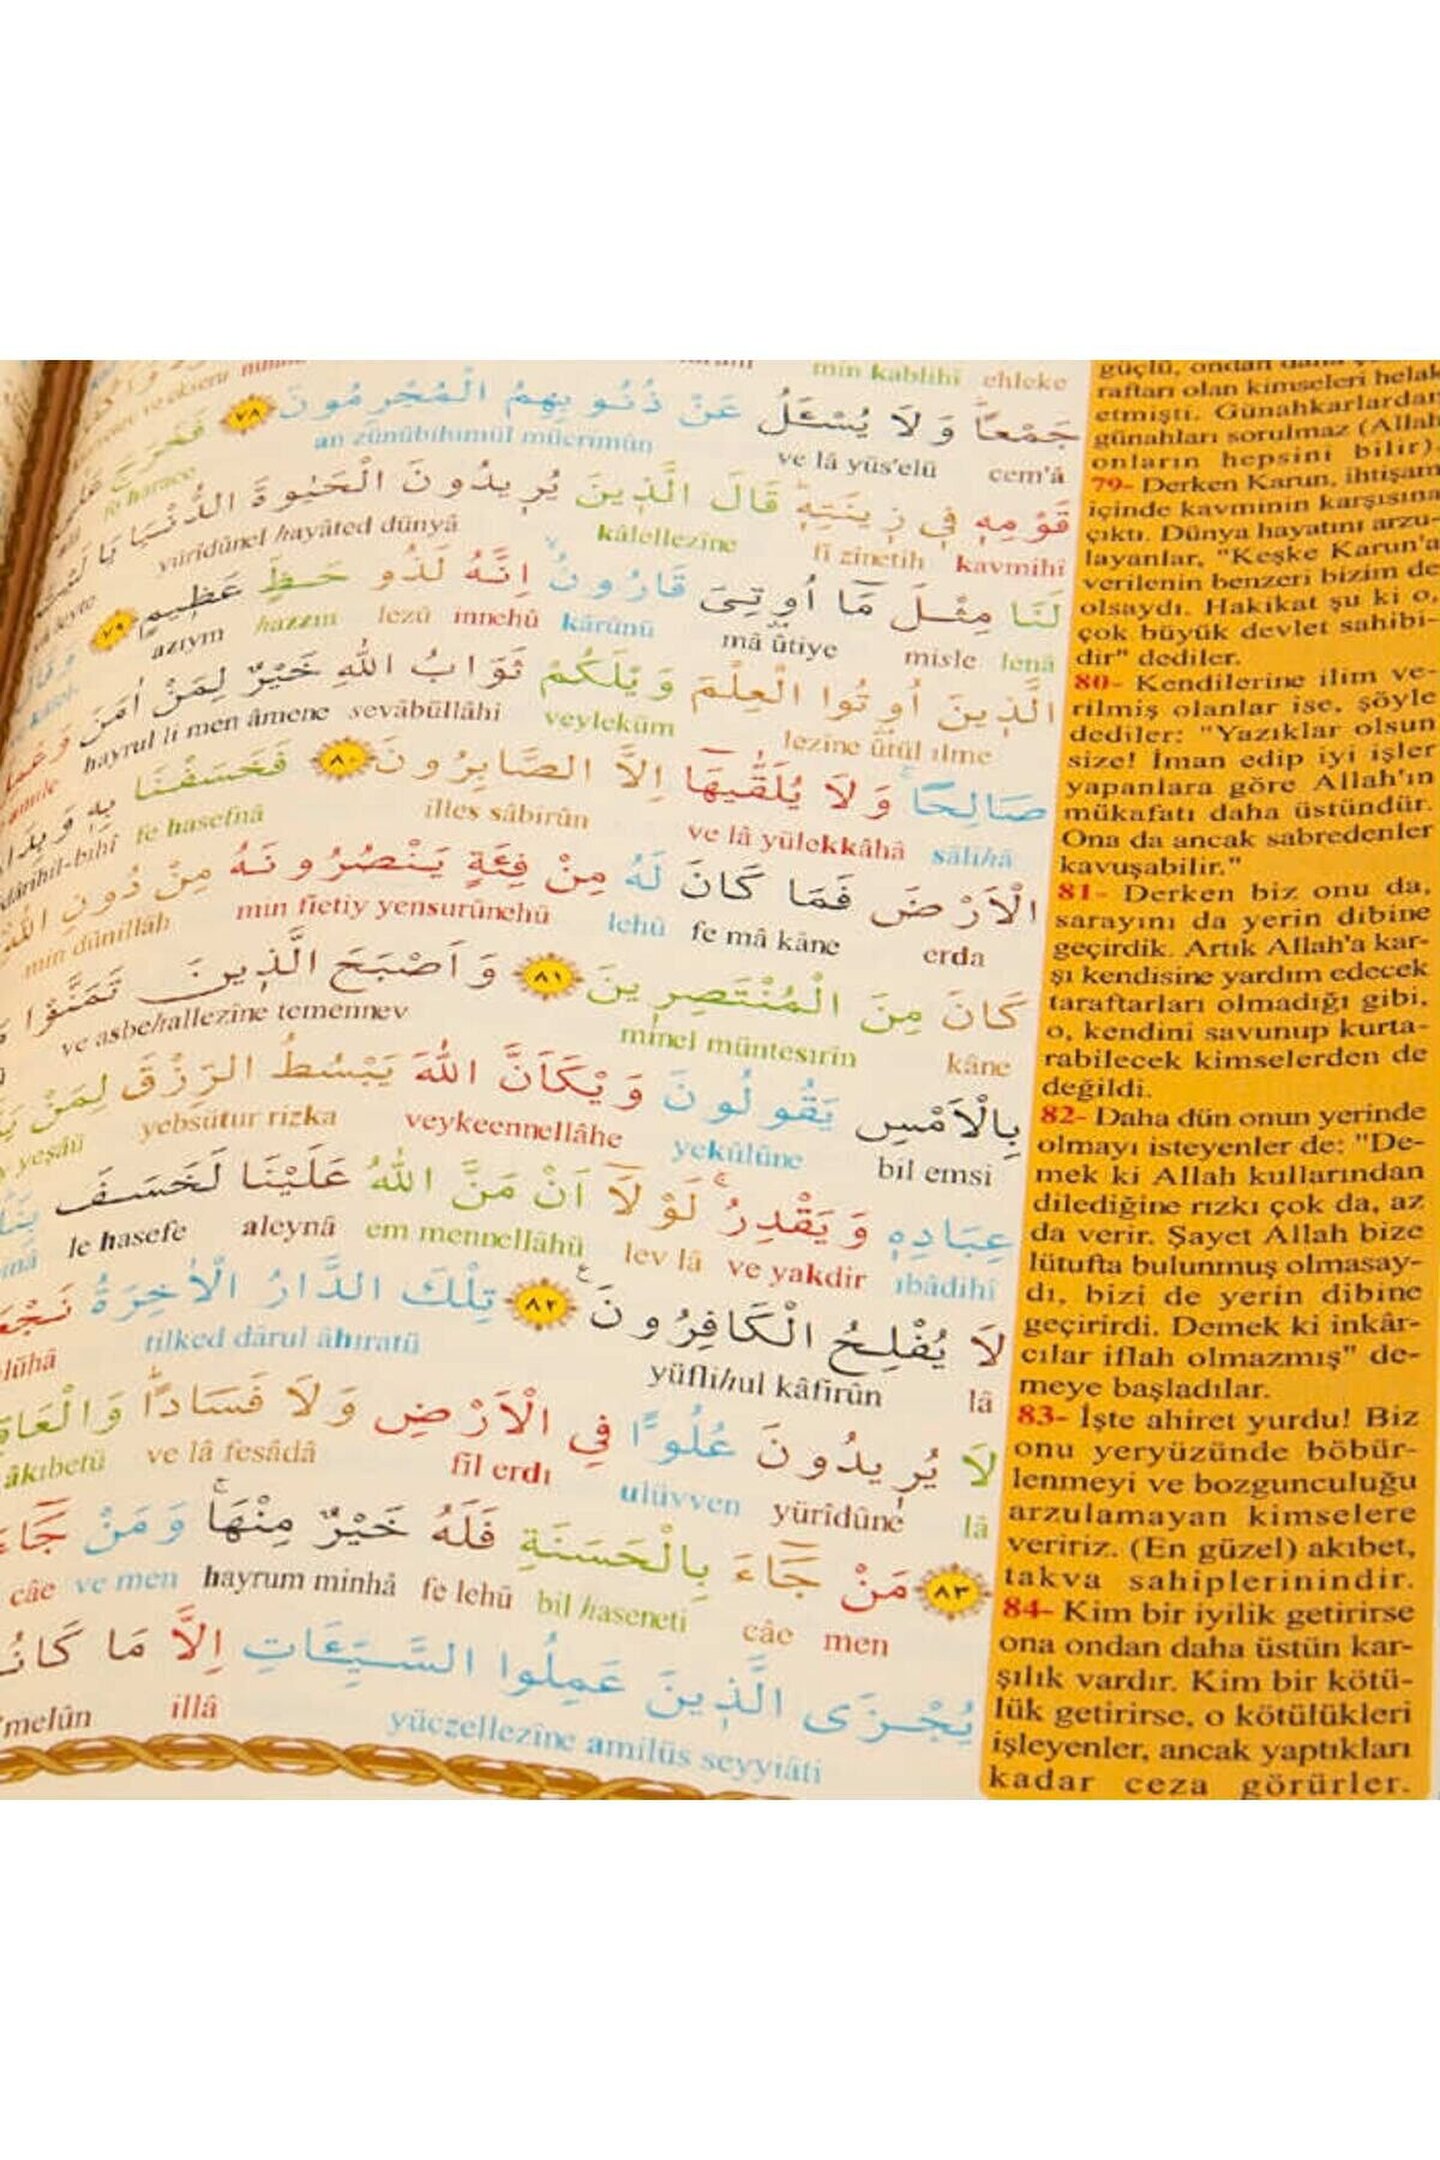 min kablihî ehleke
جَمْعًا وَلَا يُسْـَٔلُ عَنْ ذُنُوبِهِمُ الْمُجْرِمُونَ ﴿٧٨﴾ فَخَرَجَ
cem'â ve lâ yüs'elü an zünûbihimül mücrimûn fe harace
قَوْمِهٖ فٖي زٖينَتِهٖ قَالَ الَّذٖينَ يُرٖيدُونَ الْحَيٰوةَ الدُّنْيَا يَا لَيْتَ
kavmihî fî zînetih kâlellezîne yürîdûnel hayâted dünyâ
لَنَا مِثْلَ مَٓا اُو۫تِيَ قَارُونُ اِنَّهُ لَذُو حَظٍّ عَظٖيمٍ ﴿٧٩﴾
lenâ misle mâ ûtiye kârûnü innehû lezû hazzın azıym
الَّذٖينَ اُو۫تُوا الْعِلْمَ وَيْلَكُمْ ثَوَابُ اللّٰهِ خَيْرٌ لِمَنْ اٰمَنَ وَعَمِلَ
lezîne ûtül ılme veyleküm sevâbüllâhi hayrul li men âmene
صَالِحًا وَلَا يُلَقّٰيهَٓا اِلَّا الصَّابِرُونَ ﴿٨٠﴾ فَخَسَفْنَا بِهٖ
sâlihâ ve lâ yülekkâhâ illes sâbirûn fe hasefnâ
الْاَرْضَ فَمَا كَانَ لَهُ مِنْ فِئَةٍ يَنْصُرُونَهُ مِنْ دُونِ اللّٰهِ
erda fe mâ kâne lehû min fietiy yensurûnehû min dûnillâh
كَانَ مِنَ الْمُنْتَصِرٖينَ ﴿٨١﴾ وَاَصْبَحَ الَّذٖينَ تَمَنَّوْا
kâne minel müntesırîn ve asbehallezîne temennev
بِالْاَمْسِ يَقُولُونَ وَيْكَاَنَّ اللّٰهَ يَبْسُطُ الرِّزْقَ لِمَنْ
bil emsi yekûlûne veykeennellâhe yebsütur rizka yeşâü
عِبَادِهٖ وَيَقْدِرُ لَوْلَٓا اَنْ مَنَّ اللّٰهُ عَلَيْنَا لَخَسَفَ
ıbâdihî ve yakdir lev lâ em mennellâhü aleynâ le hasefe
لَا يُفْلِحُ الْكَافِرُونَ ﴿٨٢﴾ تِلْكَ الدَّارُ الْاٰخِرَةُ
lâ yüflihul kâfirûn tilked dârul âhıratü
لَا يُرٖيدُونَ عُلُوًّا فِي الْاَرْضِ وَلَا فَسَادًا
lâ yürîdûne ulüvven fil erdı ve lâ fesâdâ âkıbetü
﴿٨٣﴾ مَنْ جَٓاءَ بِالْحَسَنَةِ فَلَهُ خَيْرٌ مِنْهَا وَمَنْ جَٓاءَ
men câe bil haseneti fe lehû hayrum minhâ ve men câe
يُجْزَى الَّذٖينَ عَمِلُوا السَّيِّـَٔاتِ اِلَّا مَا
yüczellezîne amilüs seyyiâti illâ
raftarı olan kimseleri helak
etmişti. Günahkarlardan
günahları sorulmaz (Allah
onların hepsini bilir).
79- Derken Karun, ihtişam
içinde kavminin karşısına
çıktı. Dünya hayatını arzu-
layanlar, "Keşke Karun'a
verilenin benzeri bizim de
olsaydı. Hakikat şu ki o,
çok büyük devlet sahibi-
dir" dediler.
80- Kendilerine ilim ve-
rilmiş olanlar ise, şöyle
dediler: "Yazıklar olsun
size! İman edip iyi işler
yapanlara göre Allah'ın
mükafatı daha üstündür.
Ona da ancak sabredenler
kavuşabilir."
81- Derken biz onu da,
sarayını da yerin dibine
geçirdik. Artık Allah'a kar-
şı kendisine yardım edecek
taraftarları olmadığı gibi,
o, kendini savunup kurta-
rabilecek kimselerden de
değildi.
82- Daha dün onun yerinde
olmayı isteyenler de: "De-
mek ki Allah kullarından
dilediğine rızkı çok da, az
da verir. Şayet Allah bize
lütufta bulunmuş olmasay-
dı, bizi de yerin dibine
geçirirdi. Demek ki inkâr-
cılar iflah olmazmış" de-
meye başladılar.
83- İşte ahiret yurdu! Biz
onu yeryüzünde böbür-
lenmeyi ve bozgunculuğu
arzulamayan kimselere
veririz. (En güzel) akıbet,
takva sahiplerinindir.
84- Kim bir iyilik getirirse
ona ondan daha üstün kar-
şılık vardır. Kim bir kötü-
lük getirirse, o kötülükleri
işleyenler, ancak yaptıkları
kadar ceza görürler.